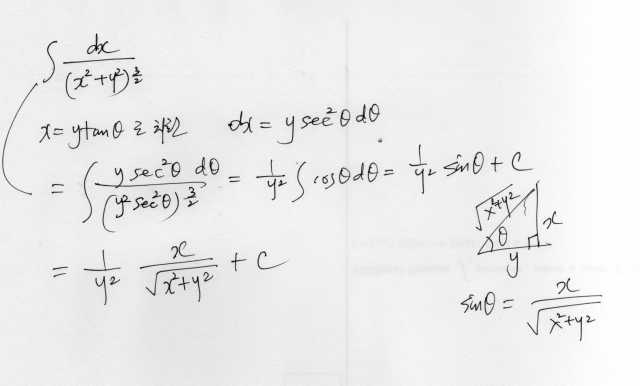 ∫ dx / (x²+y²)^(3/2)
x = y tanθ 로 치환 dx = y sec²θ dθ
= ∫ y sec²θ dθ / (y² sec²θ)^(3/2) = 1/y² ∫ cosθ dθ = 1/y² sinθ + C
√(x²+y²) x
θ
y
= 1/y² x/√(x²+y²) + C
sinθ = x/√(x²+y²)